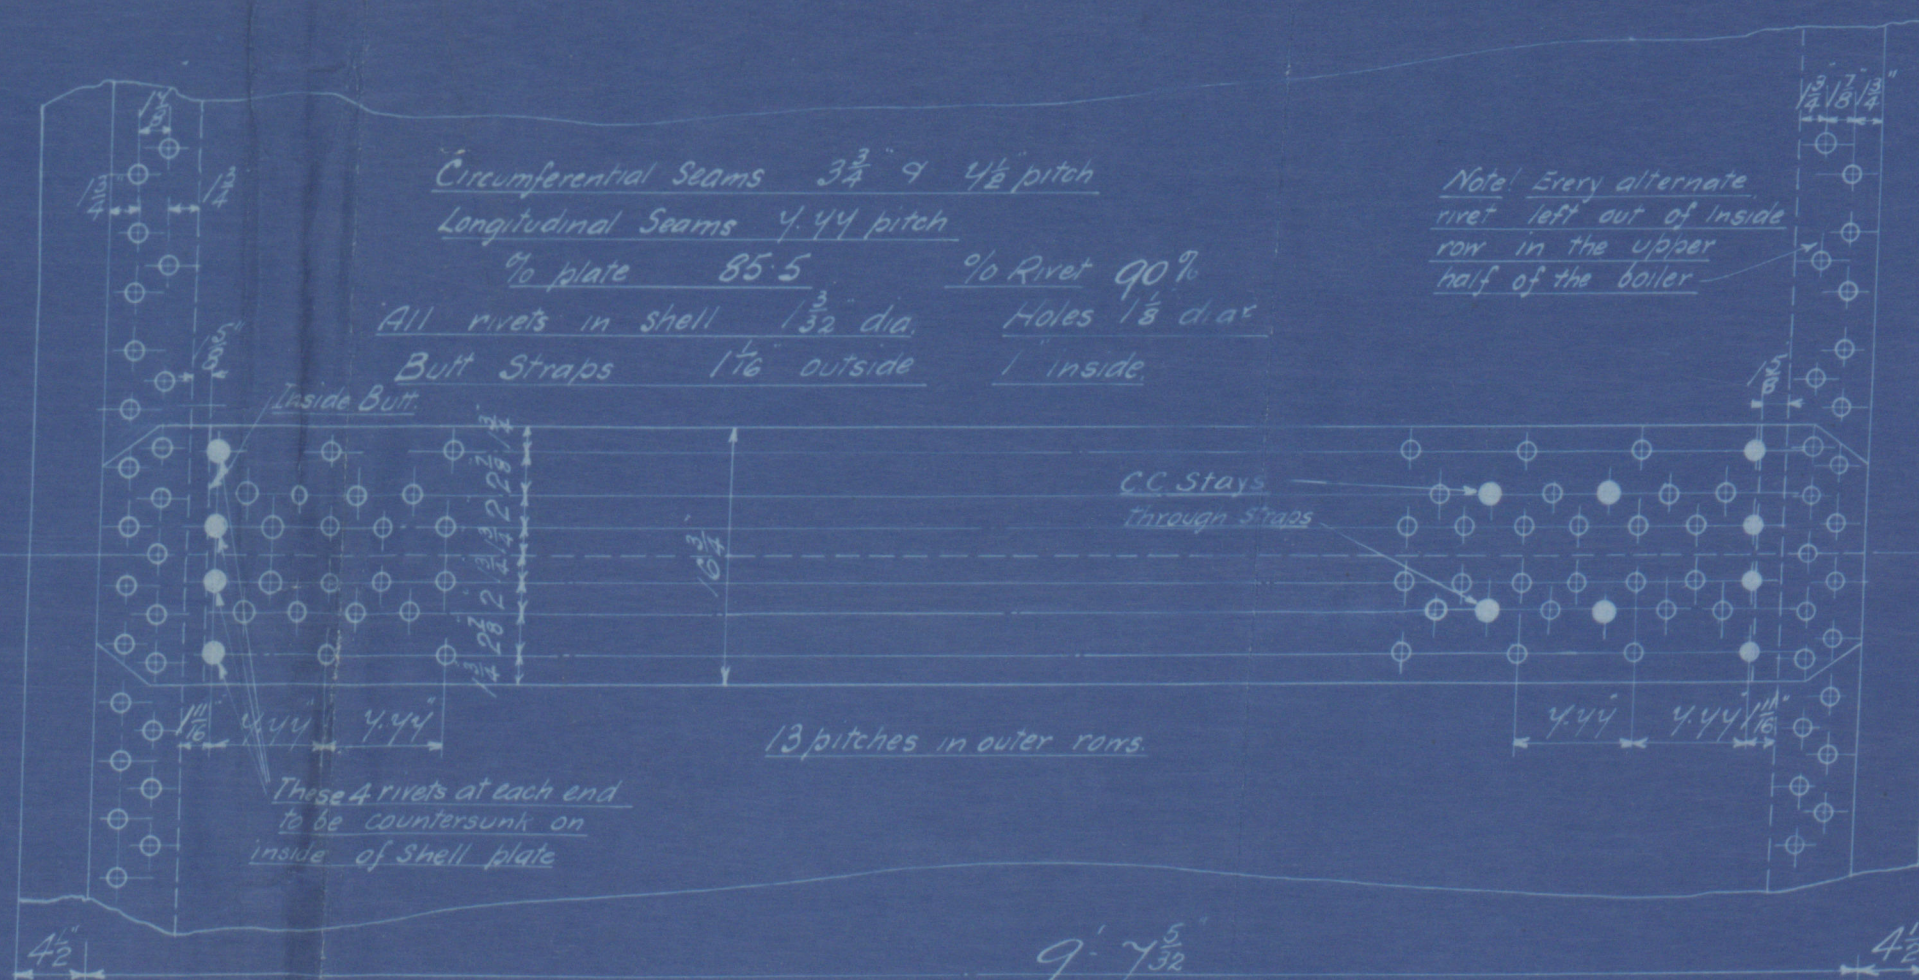 1 7/8"
1 3/4"
1 3/4
1 3/4" 1 7/8" 1 3/4"
Circumferential Seams 3 3/4" & 7 1/2" pitch
Longitudinal Seams 7.77 pitch
% plate 85.5 % Rivet 90%
All rivets in shell 1 3/32" dia. Holes 1 1/8 diar
Butt Straps 1 1/16" outside 1" inside.
Note! Every alternate
rivet left out of inside
row in the upper
half of the boiler
1 5/8"
1 5/8"
Inside Butt.
1 3/4"
2 7/8
2
1 3/4
1 3/4
2
2 7/8
1 3/4
16 3/4"
C.C. Stays
through straps
1 11/16 7.77" 7.77"
7.77" 7.77" 1 11/16"
13 pitches in outer rows.
These 4 rivets at each end
to be countersunk on
inside of Shell plate
4 1/2" 9' 7 5/32" 4 1/2